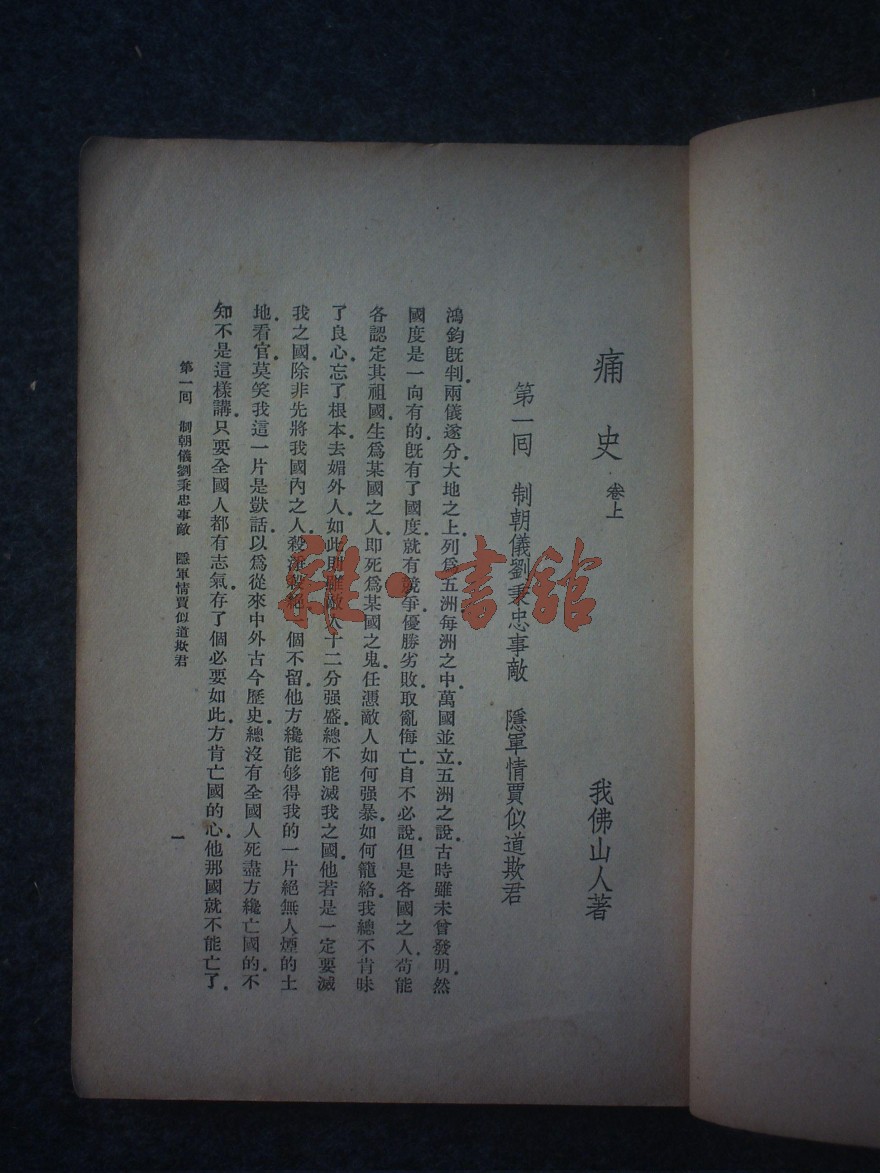 痛史 卷上
我佛山人著
第一囘 制朝儀劉秉忠事敵 隱軍情賈似道欺君
鴻鈞旣判兩儀遂分大地之上列爲五洲每洲之中萬國並立五洲之說古時雖未曾發明然
國度是一向有的旣有了國度就有競爭優勝劣敗取亂侮亡自不必說但是各國之人苟能
各認定其祖國生爲某國之人卽死爲某國之鬼任憑敵人如何强暴如何籠絡我總不肯昧
了良心忘了根本去媚外人如此則雖敵人十二分强盛總不能滅我之國他若是一定要滅
我之國除非先將我國內之人殺淨殺絕一個不留他方纔能够得我的一片絕無人煙的土
地看官莫笑我這一片是獃話以爲從來中外古今歷史總沒有全國人死盡方纔亡國的不
知不是這樣講只要全國人都有志氣存了個必要如此方肯亡國的心他那國就不能亡了
第一囘 制朝儀劉秉忠事敵 隱軍情賈似道欺君
一
雜·書館